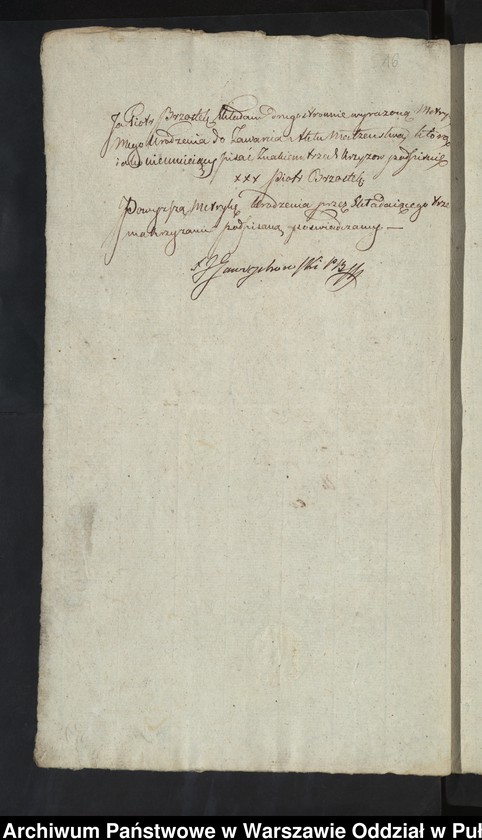 46
Ja Piotr Brzostek składam drugostronnie wyrażoną Metry
Mego Urodzenia do Zawarcia Aktu Małżenstwa, którą
iako nieumieiący pisac Znakiem trzech krzyżow podpisuię
xxx Piotr Brzostek
Powyższą Metrykę Urodzenia przez Składaiącego trze
ma krzyżami podpisaną poświadczamy —
Archiwum Państwowe w Warszawie Oddział w Puł